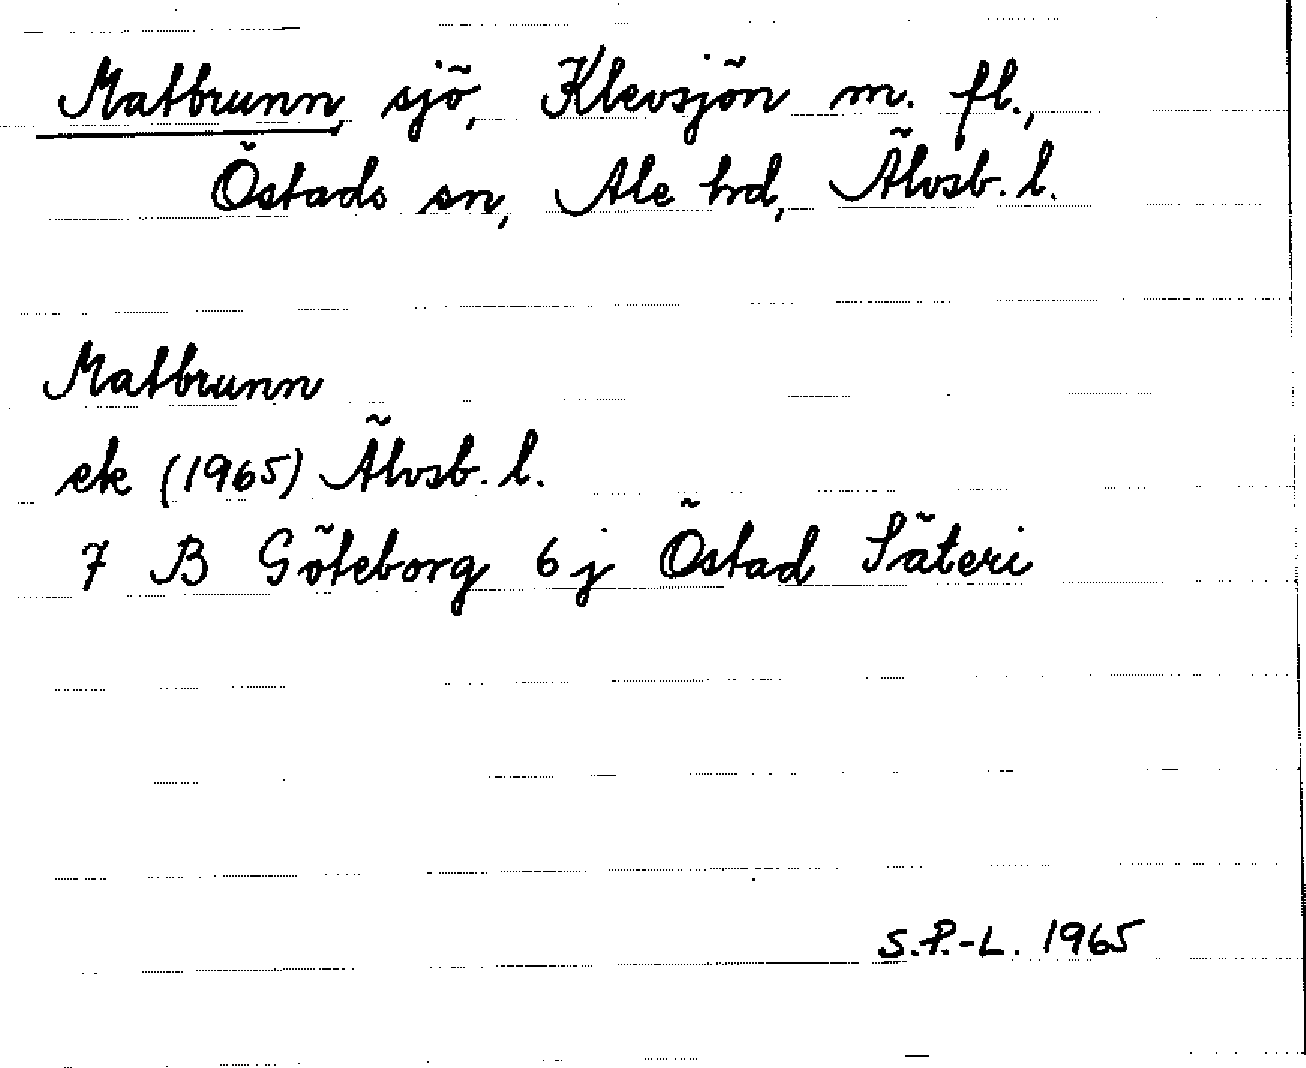 Matbrunn, sjö, Klevsjön m. fl.,
Östads sn, Ale hd, Älvsb. l.
Matbrunn
ek (1965) Älvsb. l.
7 B Göteborg 6 j Östad Säteri
S.P.-L. 1965